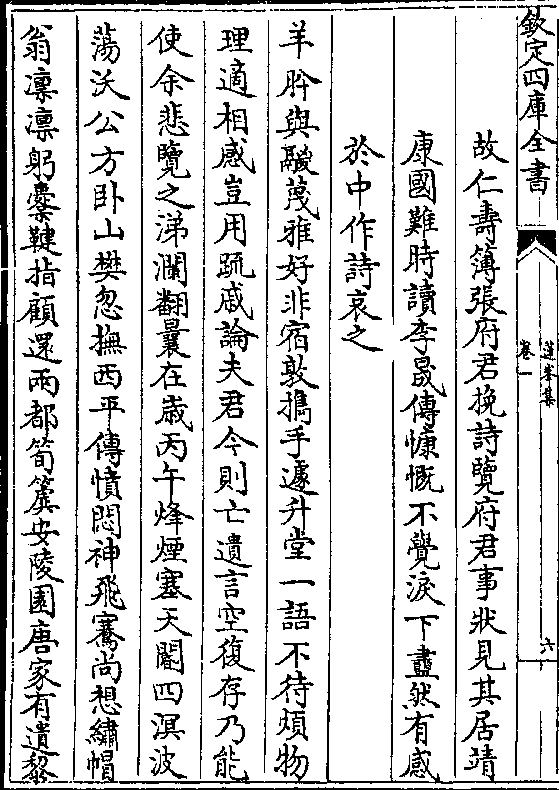 欽定四庫全書
蓮峯集
卷一
六
故仁壽簿張府君挽詩覽府君事狀見其居靖
康國難時讀李晟傳慷慨不覺淚下盡然有感
於中作詩哀之
羊肸與鬷蔑雅好非宿敦攜手遽升堂一語不待煩物
理適相感豈用疏戚論夫君今則亡遺言空復存乃能
使余悲覽之涕瀾翻曩在歲丙午烽煙塞天閽四溟波
蕩沃公方卧山樊忽撫西平傳憤悶神飛騫尚想繡帽
翁凛凛躬櫜鞬指顧還兩都筍簴安陵園唐家有遺黎